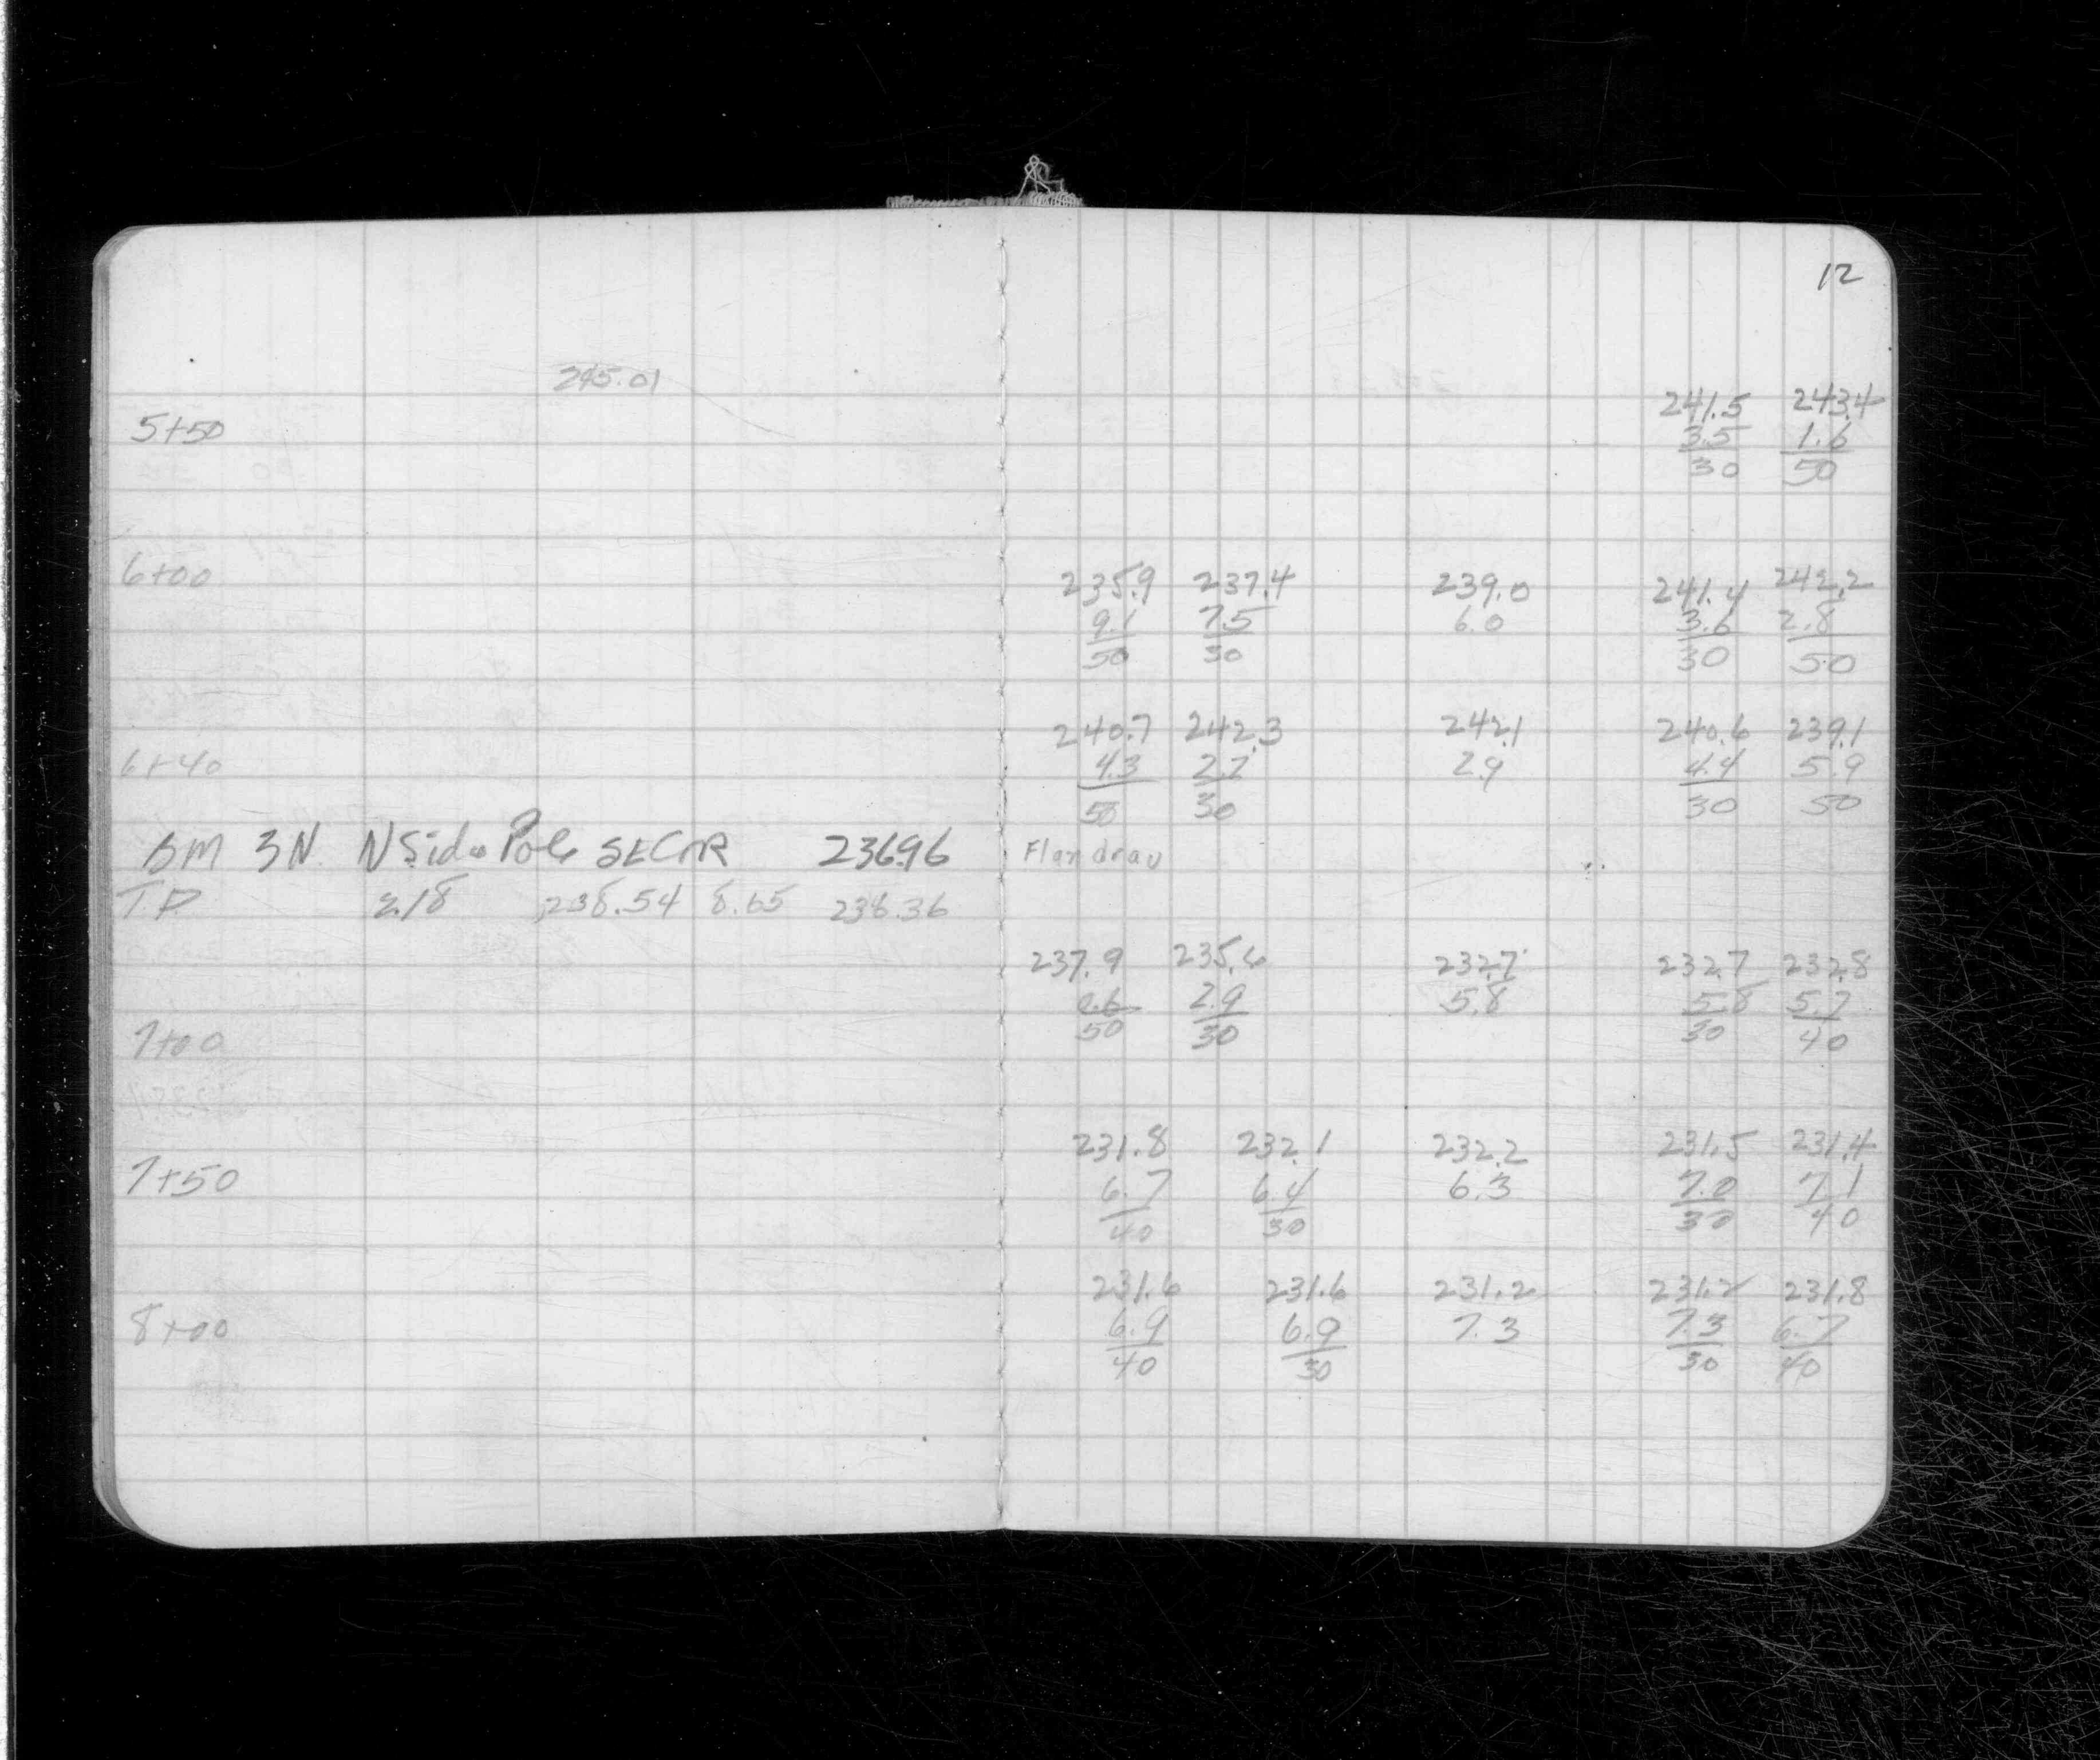 12
245.01
241.5 243.4
5+50 3.5 1.6
30 50
6+00 235.9 237.4 239.0 241.4 242.2
9.1 7.5 6.0 3.6 2.8
50 30 30 50
240.7 242.3 242.1 240.6 239.1
6+40 4.3 2.7 2.9 4.4 5.9
50 30 30 50
BM 3N N Side Pole SECOR 236.96 Flandrau
T.P. 2.18 238.54 8.65 236.36
237.9 235.6 232.7 232.7 232.8
0.6 2.9 5.8 5.8 5.7
7+00 50 30 30 40
231.8 232.1 232.2 231.5 231.4
7+50 6.7 6.4 6.3 7.0 7.1
40 30 30 40
231.6 231.6 231.2 231.2 231.8
8+00 6.9 6.9 7.3 7.3 6.7
40 30 30 40